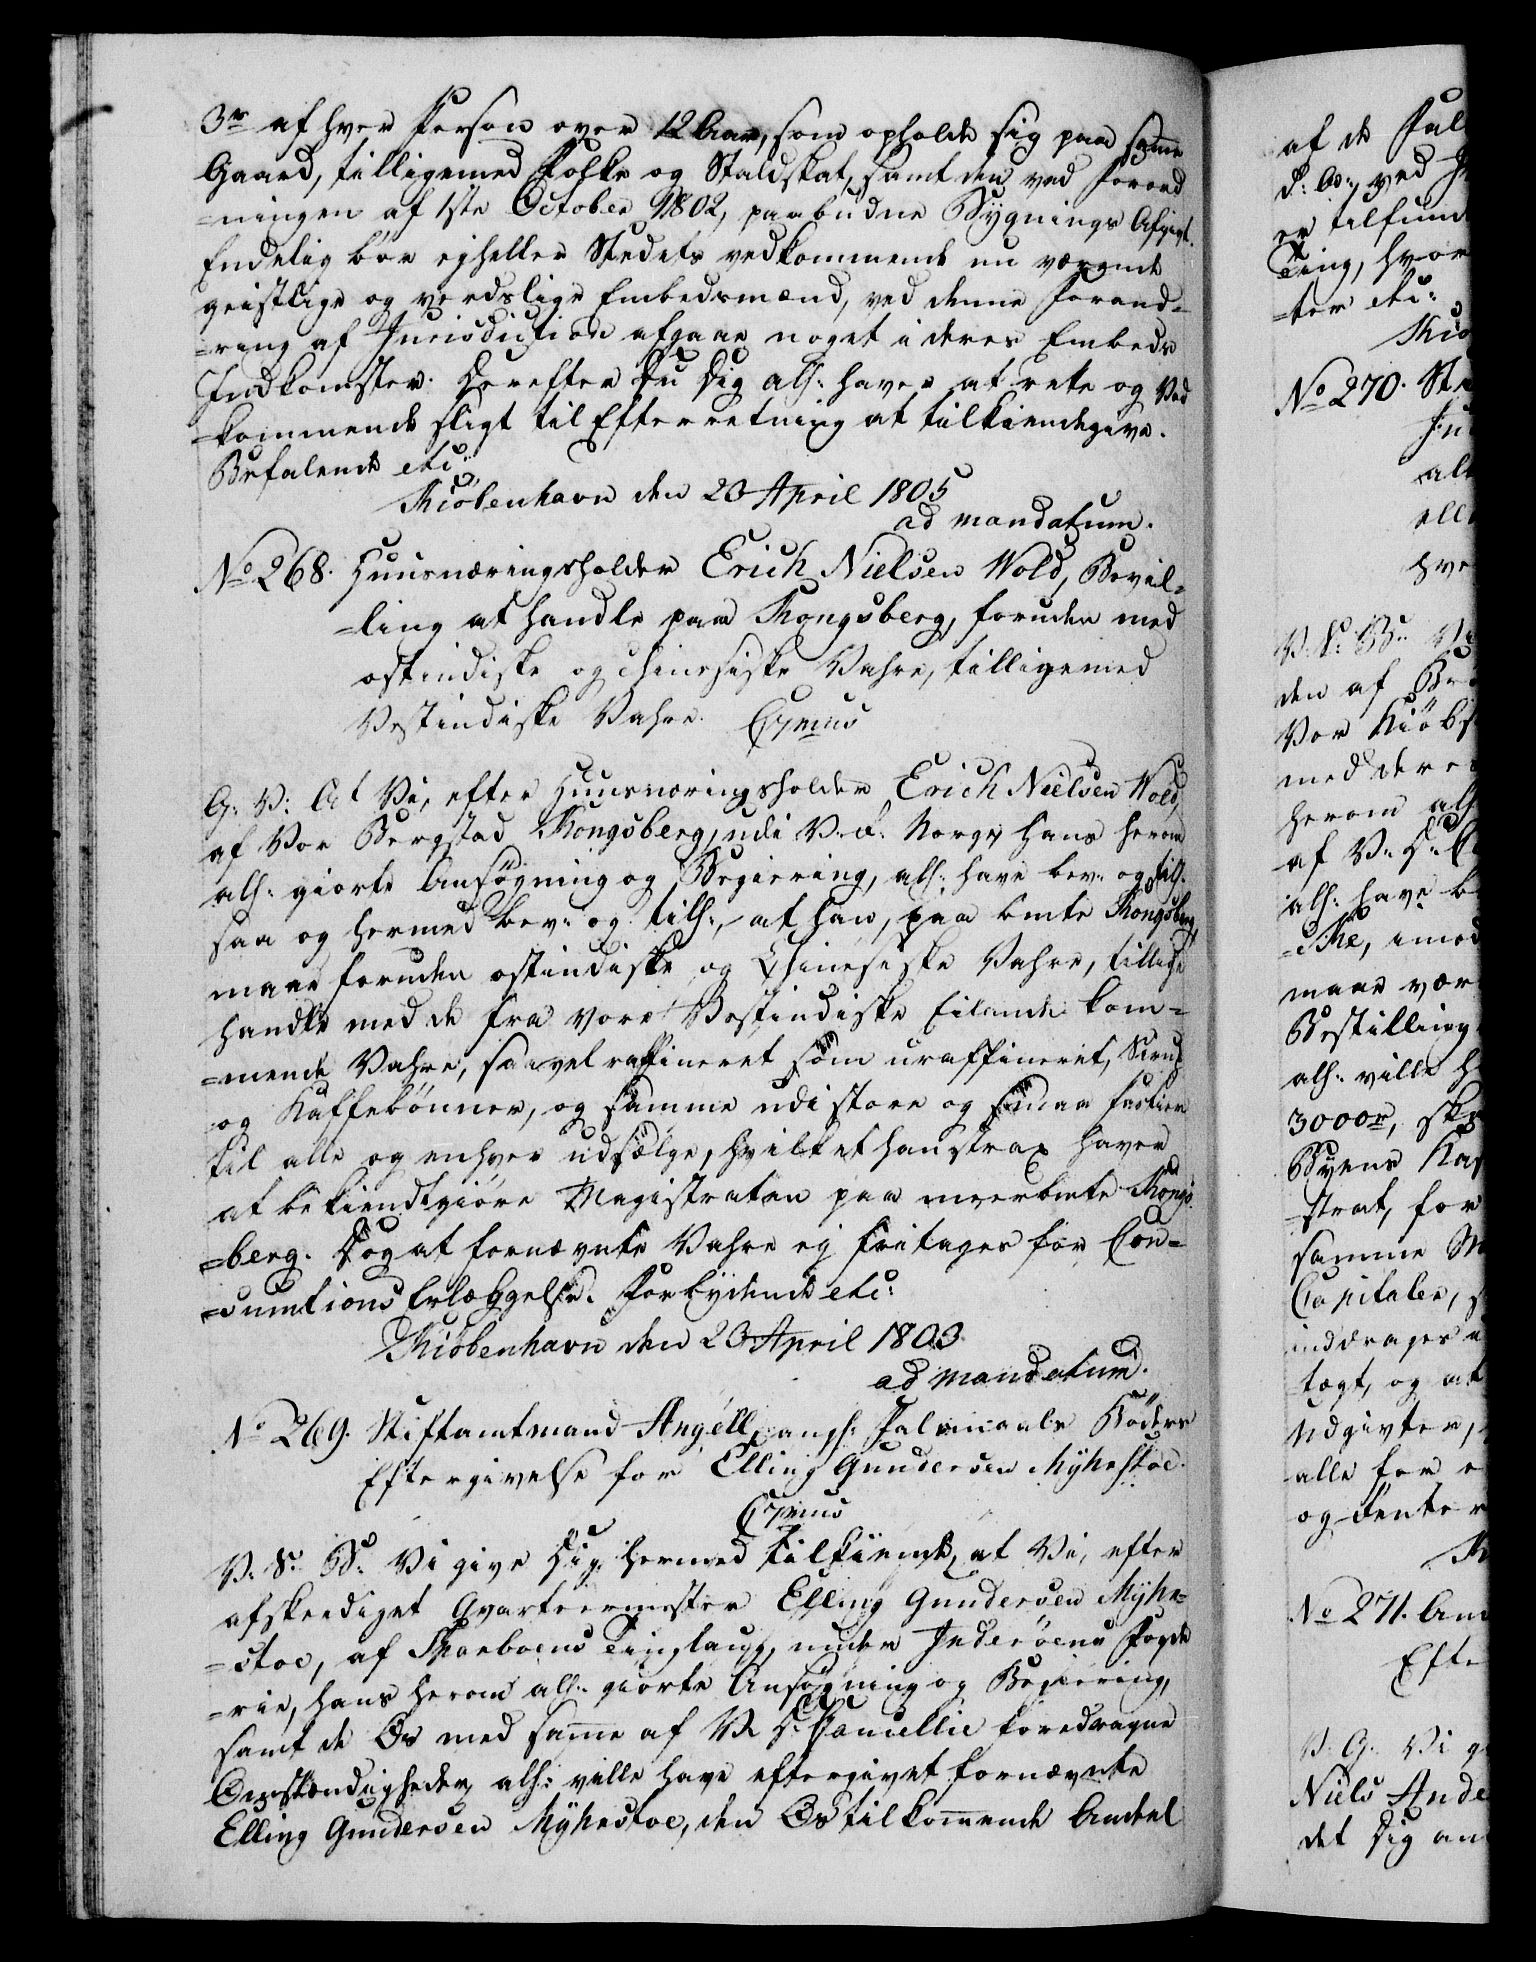 3rd af hver Person over 12 Aar, som opholde sig paa samme
Gaard, tilligemed Folke og Staldskat, samt den ved Forord
=ningen af 1ste October 1802, paabudne Bygnings Afgivt.
Endelig bør ejheller Stedets vedkommende nu værende
geistlige og verdslige Embedsmænd, ved denne Forand=
=ring af Jurisdiction afgaae noget i deres Embeds
Indkomster. Derefter Du Dig alh: haver at rette og Ved
=kommende sligt til Efterretning at tilkiendegive.
Befalende etc:
Kiøbenhavn den 20 April 1805
ad mandatum.
No 268. Huusnæringsholder Erich Nielsen Wold, Bevil=
=ling at handle paa Kongsberg, foruden med
ostindiske og chinesiske Vahre, tilligemed
Vestindiske Vahre.
G: V: At Vi, efter Huusnæringsholder Erich Nielsen Wold,
af Vor Bergstad Kongsberg, udi V: R: Norge, hans herom
alh: giorte Ansøgning og Begiering, alh: have bev: og tilh:
saa og hermed bev: og tilh:, at han, paa bemte Kongsberg,
maae foruden ostindiske og Chinesiske Vahre, tillige
handle med de fra vore Vestindiske Eilande kom=
=mende Vahre, saavel raffineret som uraffineret, Sirup
og Kaffebønner, og samme udi store og smaa Partier
til alle og enhver udsælge, hvilket han strax haver
at bekiendtgiøre Magistraten paa meerbemte Kongs=
=berg. Dog at fornævnte Vahre ej fritages for Con=
=sumtions Erlæggelse. Forbydende etc:
Kiøbenhavn den 23 April 1803
ad mandatum.
No 269. Stiftamtmand Angell, angh: Faldmaals Bøders
Eftergivelse for Elling Gundersen Myhrstoe.
V: S: B: Vi give Dig hermed tilkiende, at Vi, efter
afskediget Qvarteermester Elling Gundersen Myhr=
=stoe, af Sparboens Tinglaug, under Inderøens Fogde
=rie, hans herom alh: giorte Ansøgning og Begiering,
samt de Os med samme af V: D: Cancellie foredragne
Omstændigheder, alh: ville have eftergivet fornævnte
Elling Gundersen Myhrstoe, den Os tilkommende Andeel
af de
ved
er tilfund
Ting, hvor
=ter etc:
No 270.
V: S: B: Vi
den af
Vor Kiøbst
med deres
herom alh
af V: D: C
alh: have b
=ske, imod
maae vær
Bestilling
alh: ville h
3000rd,
Byens Kas
=strat, for
samme M
Capitaler,
inddrages
=tægt, og at
Udgivter,
alle for
og Rente
No 271.
Efte
V: G: Vi g
Niels Ande
det Dig an